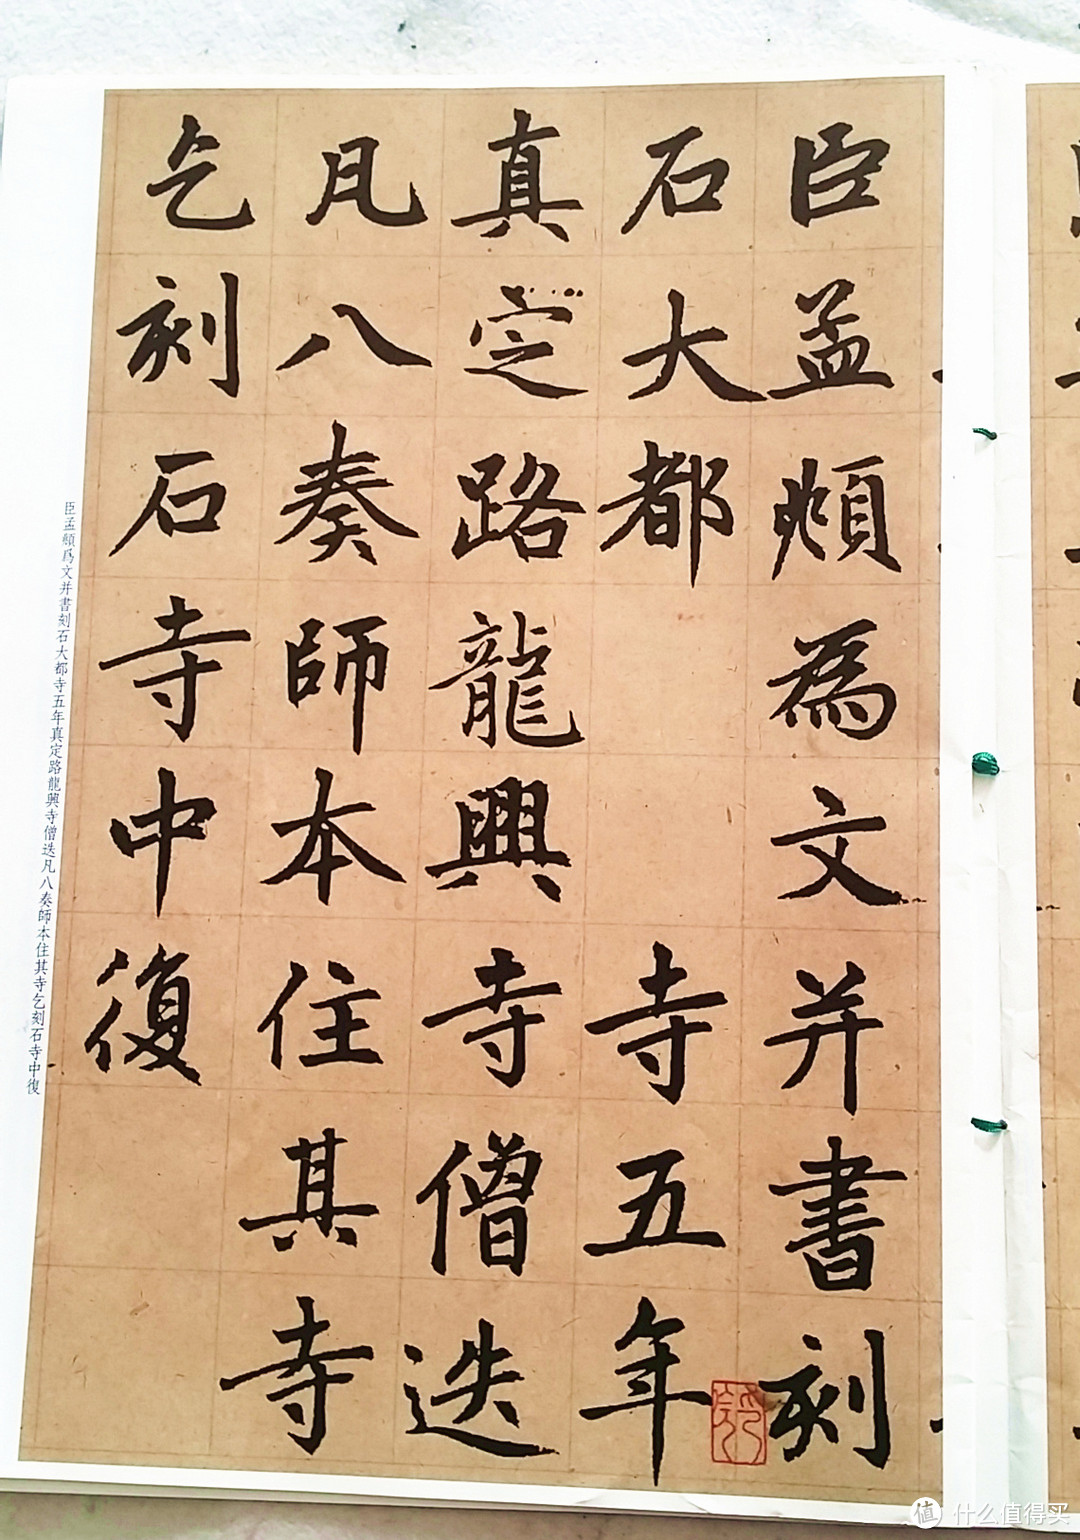 臣孟頫為文并書刻
石大都寺五年
真定路龍興寺僧迭
凡八奏師本住其寺
乞刻石寺中復
臣孟頫爲文并書刻石大都寺五年真定路龍興寺僧迭凡八奏師本住其寺乞刻石寺中復
值 什么值得买